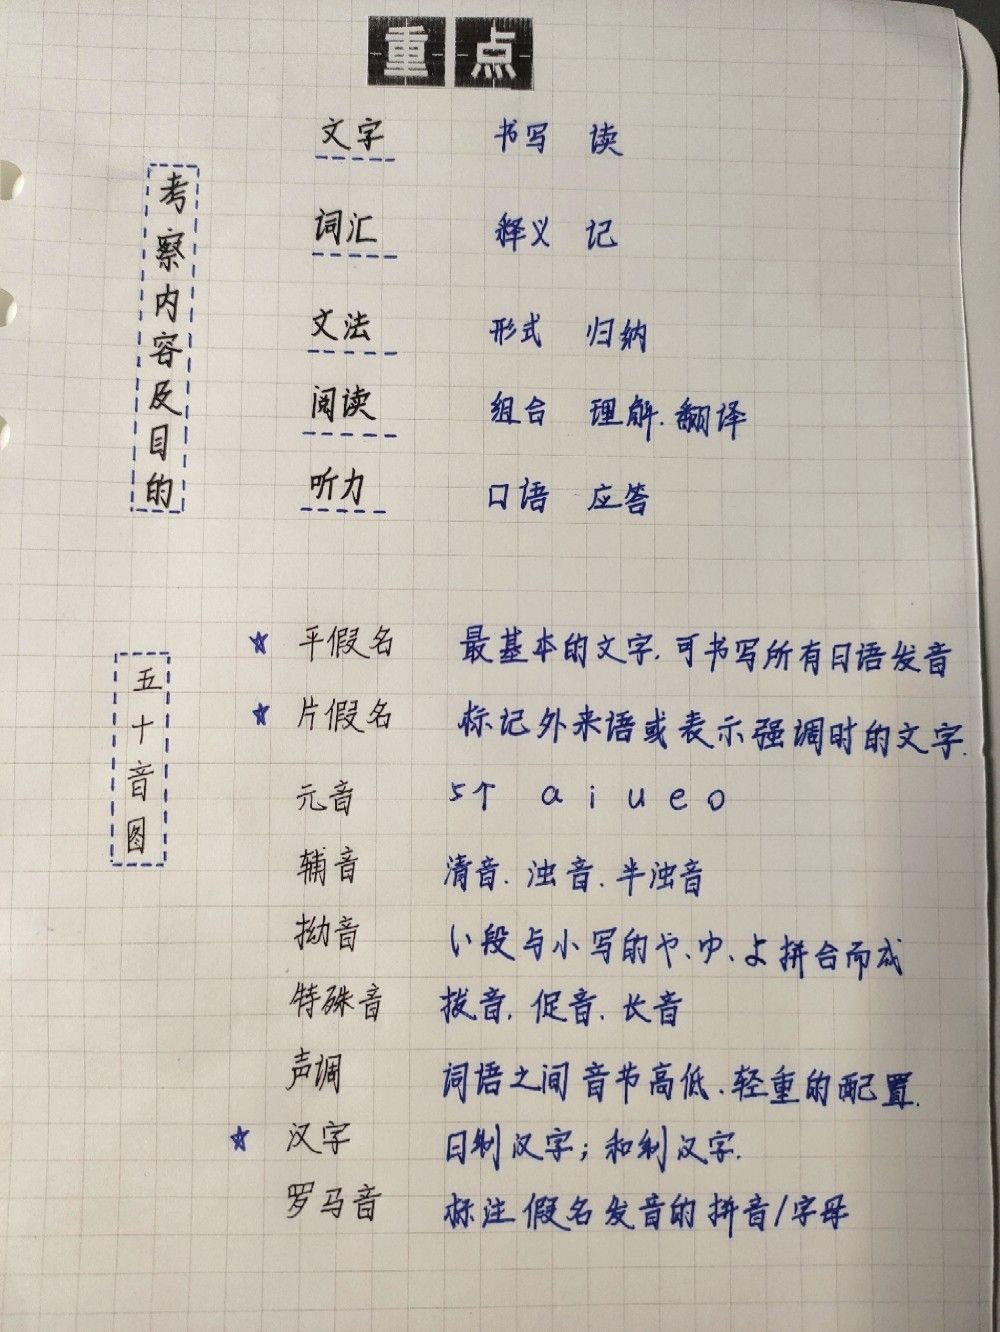 重点
考察内容及目的
文字 书写 读
词汇 释义 记
文法 形式 归纳
阅读 组合 理解.翻译
听力 口语 应答
五十音图
☆ 平假名 最基本的文字.可书写所有日语发音
☆ 片假名 标记外来语或表示强调时的文字.
元音 5个 a i u e o
辅音 清音.浊音.半浊音
拗音 い段与小写的や、ゆ、よ拼合而成
特殊音 拨音.促音.长音
声调 词语之间音节高低、轻重的配置.
☆ 汉字 日制汉字;和制汉字.
罗马音 标注假名发音的拼音/字母